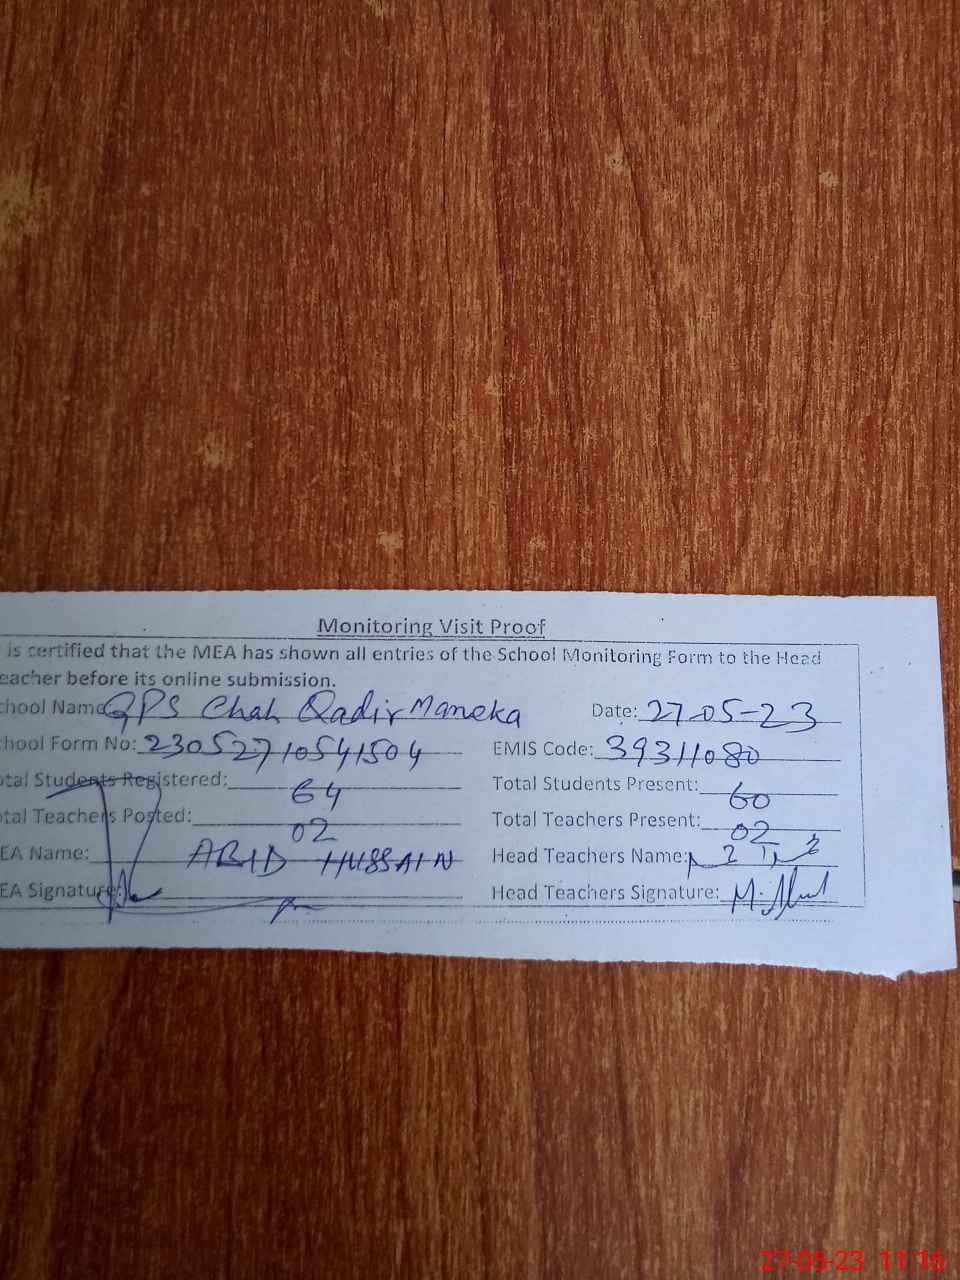 Monitoring Visit Proof
is certified that the MEA has shown all entries of the School Monitoring Form to the Head
eacher before its online submission.
chool Name GPS Chah Qadir Maneka Date: 27-05-23
hool Form No: 23052710541504 EMIS Code: 39311080
otal Students Registered: 64 Total Students Present: 60
otal Teachers Posted: 02 Total Teachers Present: 02
EA Name: ABID HUSSAIN Head Teachers Name:
EA Signature: Head Teachers Signature:
27-05-23 11:16